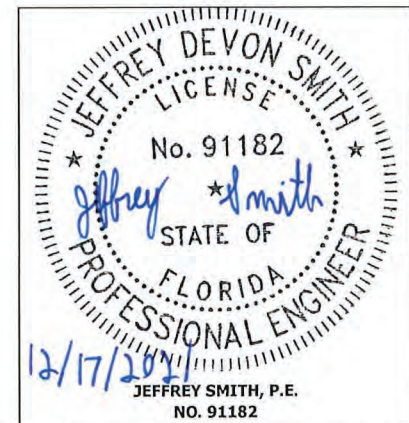 JEFFREY DEVON SMITH
LICENSE
No. 91182
Jeffrey Smith
STATE OF
FLORIDA
PROFESSIONAL ENGINEER
12/17/2021
JEFFREY SMITH, P.E.
NO. 91182